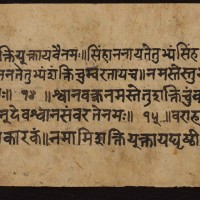 क्तियुक्तायवैनमः॥सिंहाननायतेतुभ्यंसिंह
ननतेतुभ्यंशक्तिचुम्बरतायच॥नमस्तेस्तु
ः॥ १४ ॥श्वानवक्त्रनमस्तेतुशक्तिचुं
नूदेवश्वानसंवरतेनमः॥ १५ ॥वराह
कारकं॥नमामिशक्तियुक्तायपृथ्वी